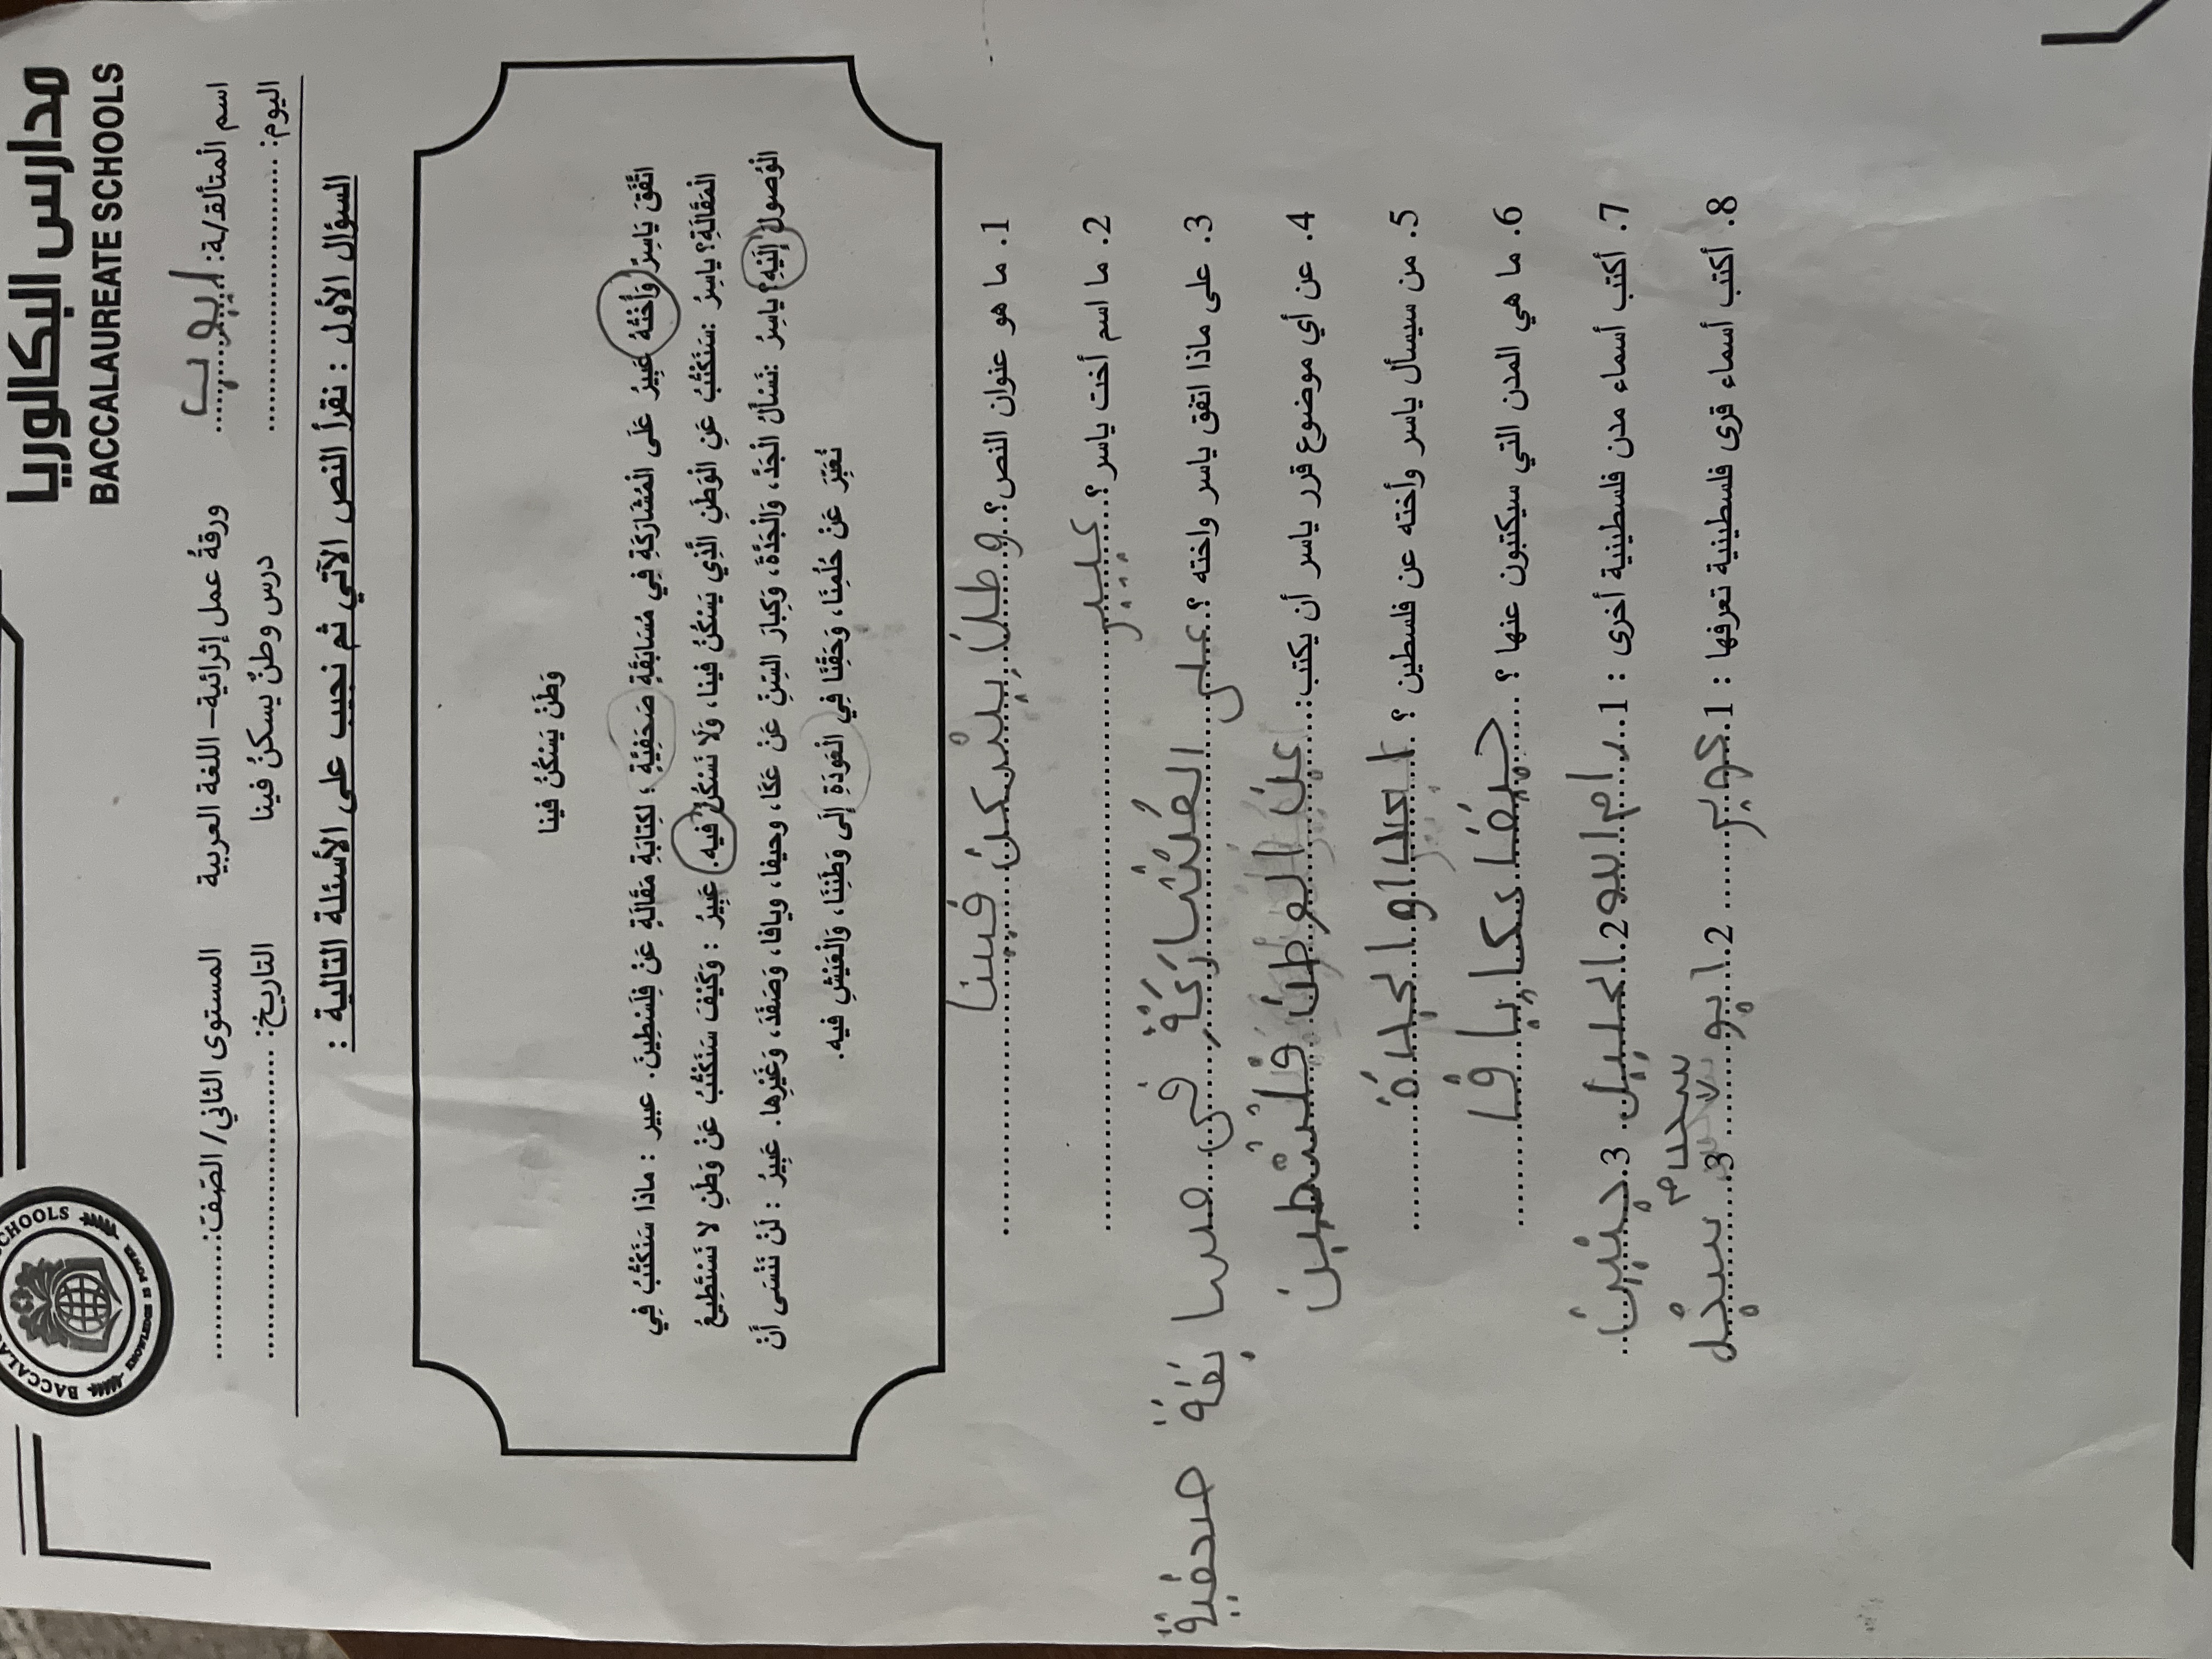 مدارس البكالوريا
BACCALAUREATE SCHOOLS
BACCALA SCHOOLS KNOWLEDGE IS POWER
اسم المتألق/ة: ايوب ورقةُ عمل إثرائية – اللغة العربية المستوى الثاني/ الصّف:............
اليوم: .................... درس وطنٌ يسكنُ فينا التاريخ: ....................
السؤال الأول : نقرأ النص الآتي ثم نجيب على الأسئلة التالية :
وَطَنٌ يَسْكُنُ فينا
اتَّفَقَ يَاسِرٌ وَأُخْتُهُ عَبِيرُ عَلَى الْمُشَارَكَةِ فِي مُسَابَقَةٍ صَحَفِيَّةٍ ؛ لكِتابَةِ مَقَالَةٍ عَنْ فِلَسْطِينَ. عبير : ماذا سَنَكْتُبُ فِي
الْمَقَالَةِ؟ ياسِرُ :سَنَكْتُبُ عَنِ الْوَطَنِ الَّذِي يَسْكُنُ فينا، وَلَا نَسْكُنُ فيه. عَبِيرُ : وَكَيْفَ سَنَكْتُبُ عَنْ وَطَنٍ لا نَسْتَطِيعُ
الْوُصولَ إِلَيْهِ؟ ياسِرُ :نَسْأَلُ الْجَدَّ، وَالْجَدَّةَ، وَكِبارَ السِّنِّ عَنْ عَكّا، وحيفا، ويافا، وَصَفَدَ، وَغَيْرِها. عَبِيرُ : لَنْ نَنْسَى أَنْ
نُعَبِّرَ عَنْ حُلُمِنَا، وَحَقِّنَا فِي الْعَوْدَةِ إِلَى وَطَنِنَا، وَالْعَيْشِ فيه.
1. ما هو عنوان النص؟ وطن يسكن فينا
2. ما اسم أخت ياسر؟ عبير
3. على ماذا اتفق ياسر واخته ؟ على المُشارَكَةِ في مسابقة صحفية
4. عن أي موضوع قرر ياسر أن يكتب: عن الوطن فلسطين
5. من سيسأل ياسر وأخته عن فلسطين ؟ الجدة
6. ما هي المدن التي سيكتبون عنها ؟ حيفا عكا يافا
7. أكتب أسماء مدن فلسطينية أخرى : 1. رام الله 2. الخليل 3. جنين
8. أكتب أسماء قرى فلسطينية تعرفها : 1. كوبر 2. ابو 3. سنجل